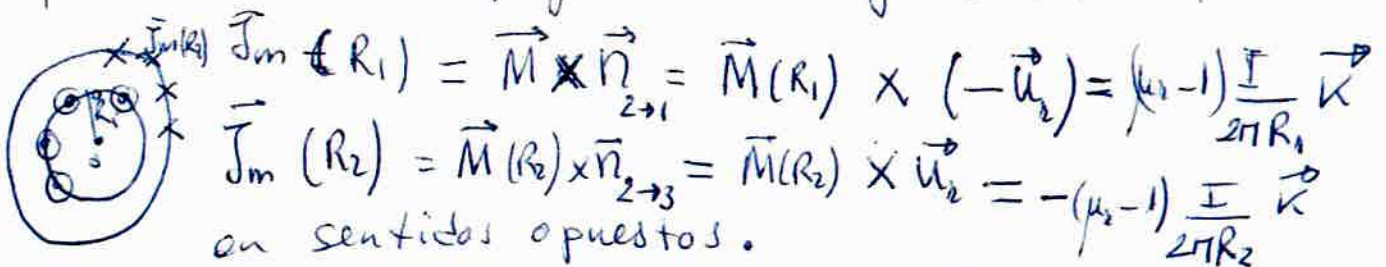 J⃗m(R₂) J⃗m (R₁) = M⃗ × n⃗₂→₁ = M⃗(R₁) × (−u⃗r) = (μr−1) I/2πR₁ K⃗
J⃗m (R₂) = M⃗(R₂) × n⃗₂→₃ = M⃗(R₂) × u⃗r = −(μr−1) I/2πR₂ K⃗
en sentidos opuestos.